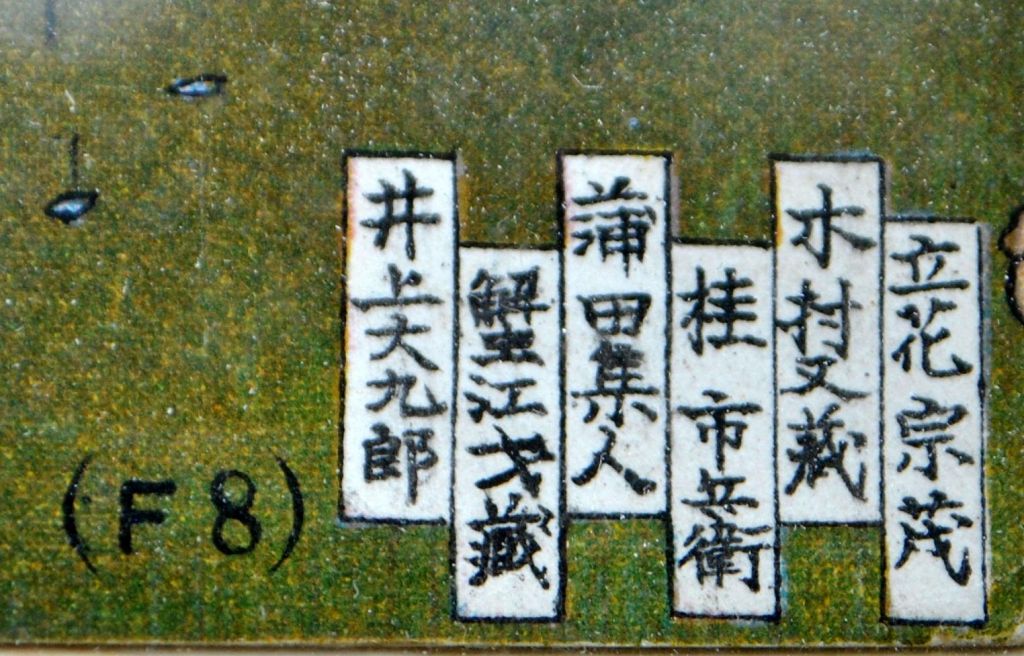 立花宗茂
木村又蔵
桂市兵衛
蒲田集人
蟹江才藏
井上大九郎
(F8)